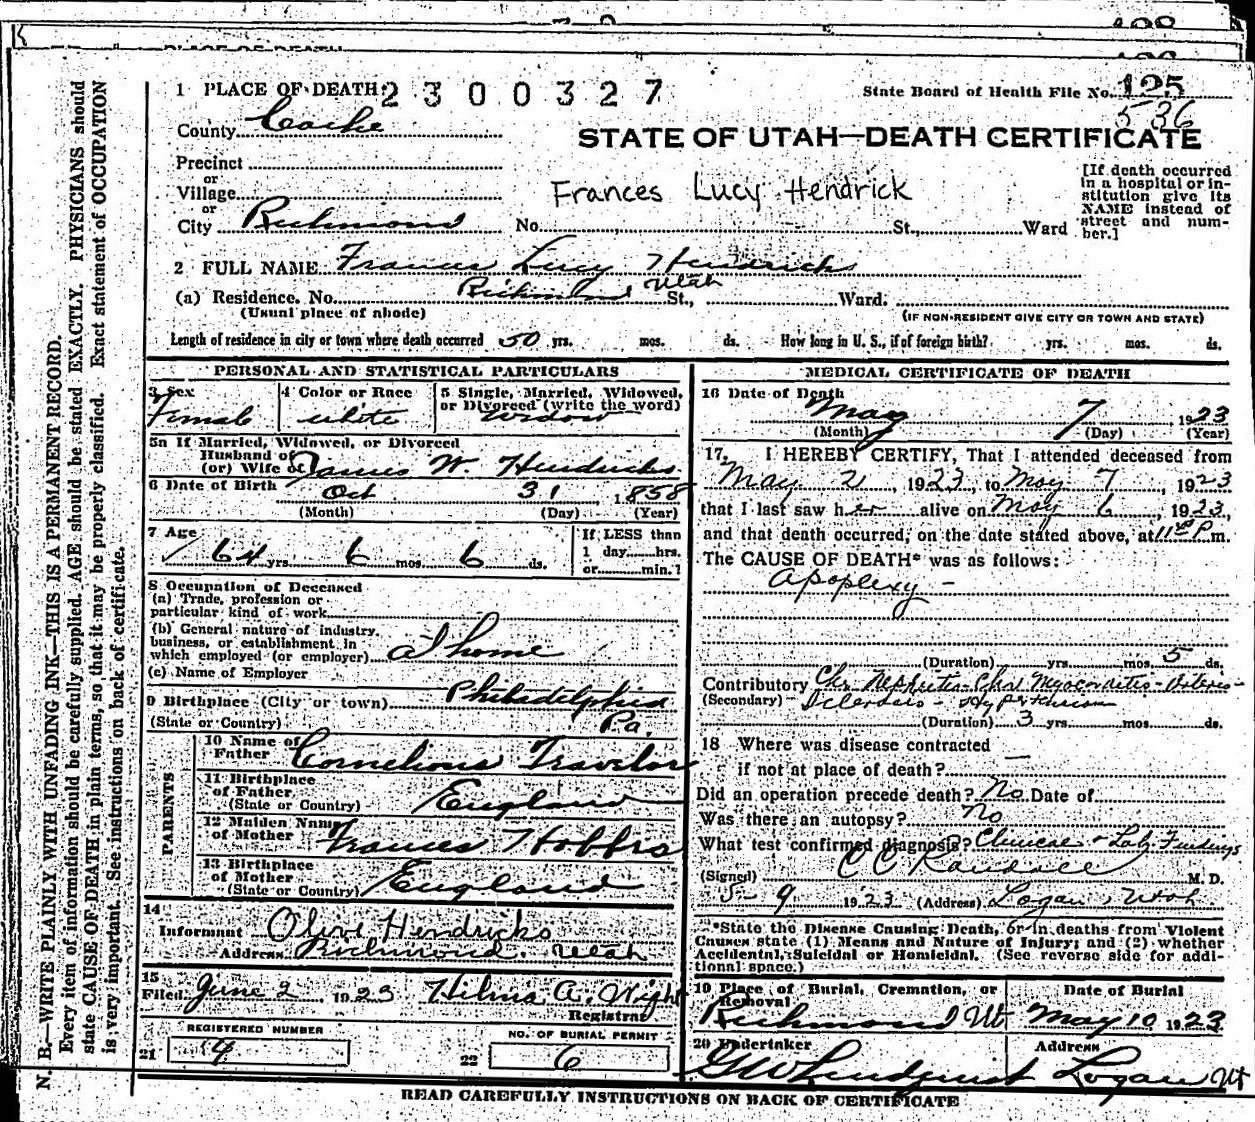 1 PLACE OF DEATH 2300327
State Board of Health File No. 125
536
County Cache
STATE OF UTAH—DEATH CERTIFICATE
Precinct
or
Village
or
City Richmond No. St., Ward
Frances Lucy Hendrick
[If death occurred
in a hospital or in-
stitution give its
NAME instead of
street and num-
ber.]
2 FULL NAME Frances Lucy Hendricks
(a) Residence. No. Richmond Utah St., Ward.
(Usual place of abode)
(IF NON-RESIDENT GIVE CITY OR TOWN AND STATE)
Length of residence in city or town where death occurred 50 yrs. mos. ds. How long in U. S., if of foreign birth? yrs. mos. ds.
PERSONAL AND STATISTICAL PARTICULARS
3 Sex
Female
4 Color or Race
white
5 Single, Married, Widowed,
or Divorced (write the word)
Widow
5a If Married, Widowed, or Divorced
Husband of
(or) Wife of James W. Hendricks
6 Date of Birth Oct 31 1858
(Month) (Day) (Year)
7 Age
64 yrs. 6 mos. 6 ds.
If LESS than
1 day hrs.
or min.?
8 Occupation of Deceased
(a) Trade, profession or
particular kind of work
(b) General nature of industry,
business, or establishment in
which employed (or employer) at home
(c) Name of Employer
9 Birthplace (City or town) Philadelphia
(State or Country) Pa.
PARENTS
10 Name of
Father Cornelious
11 Birthplace
of Father
(State or Country) England
12 Maiden Name
of Mother Frances Hobbs
13 Birthplace
of Mother
(State or Country) England
14
Informant Olive Hendricks
Address Richmond, Utah
15
Filed June 2 1923 Hilma A.
Registrar
REGISTERED NUMBER
21 4
NO. OF BURIAL PERMIT
22 6
MEDICAL CERTIFICATE OF DEATH
16 Date of Death
May 7 1923
(Month) (Day) (Year)
17. I HEREBY CERTIFY, That I attended deceased from
May 2, 1923, to May 7, 1923
that I last saw her alive on May 6, 1923,
and that death occurred, on the date stated above, at 11 P m.
The CAUSE OF DEATH* was as follows:
Apoplexy -
(Duration) yrs. mos. 5 ds.
Contributory Chr. Nephritis - Chr. Myocarditis - Arterio-
(Secondary) Sclerosis - Hypertension
(Duration) 3 yrs. mos. ds.
18 Where was disease contracted
if not at place of death? —
Did an operation precede death? No Date of
Was there an autopsy? No
What test confirmed diagnosis? Clinical - Lab. Findings
(Signed) C C Randall M. D.
5-9 1923 (Address) Logan, Utah
*State the Disease Causing Death, or in deaths from Violent
Causes state (1) Means and Nature of Injury; and (2) whether
Accidental, Suicidal or Homicidal. (See reverse side for addi-
tional space.)
19 Place of Burial, Cremation, or
Removal
Richmond Ut
Date of Burial
May 10 1923
20 Undertaker
G W Lindquist
Address
Logan Ut
READ CAREFULLY INSTRUCTIONS ON BACK OF CERTIFICATE
N. B.—WRITE PLAINLY WITH UNFADING INK—THIS IS A PERMANENT RECORD.
Every item of information should be carefully supplied. AGE should be stated EXACTLY. PHYSICIANS should
state CAUSE OF DEATH in plain terms, so that it may be properly classified. Exact statement of OCCUPATION
is very important. See instructions on back of certificate.